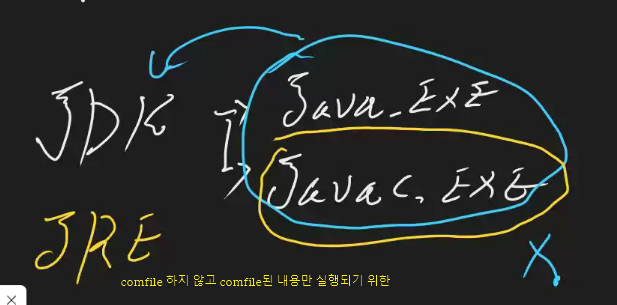 JDK
Java.EXE
Javac.EXE
JRE
X
comfile 하지 않고 comfile된 내용만 실행되기 위한